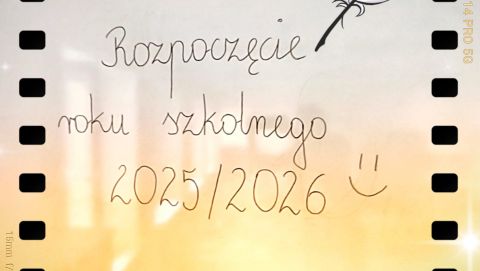 Rozpoczęcie
roku szkolnego
2025/2026
14 PRO 5G
15mm